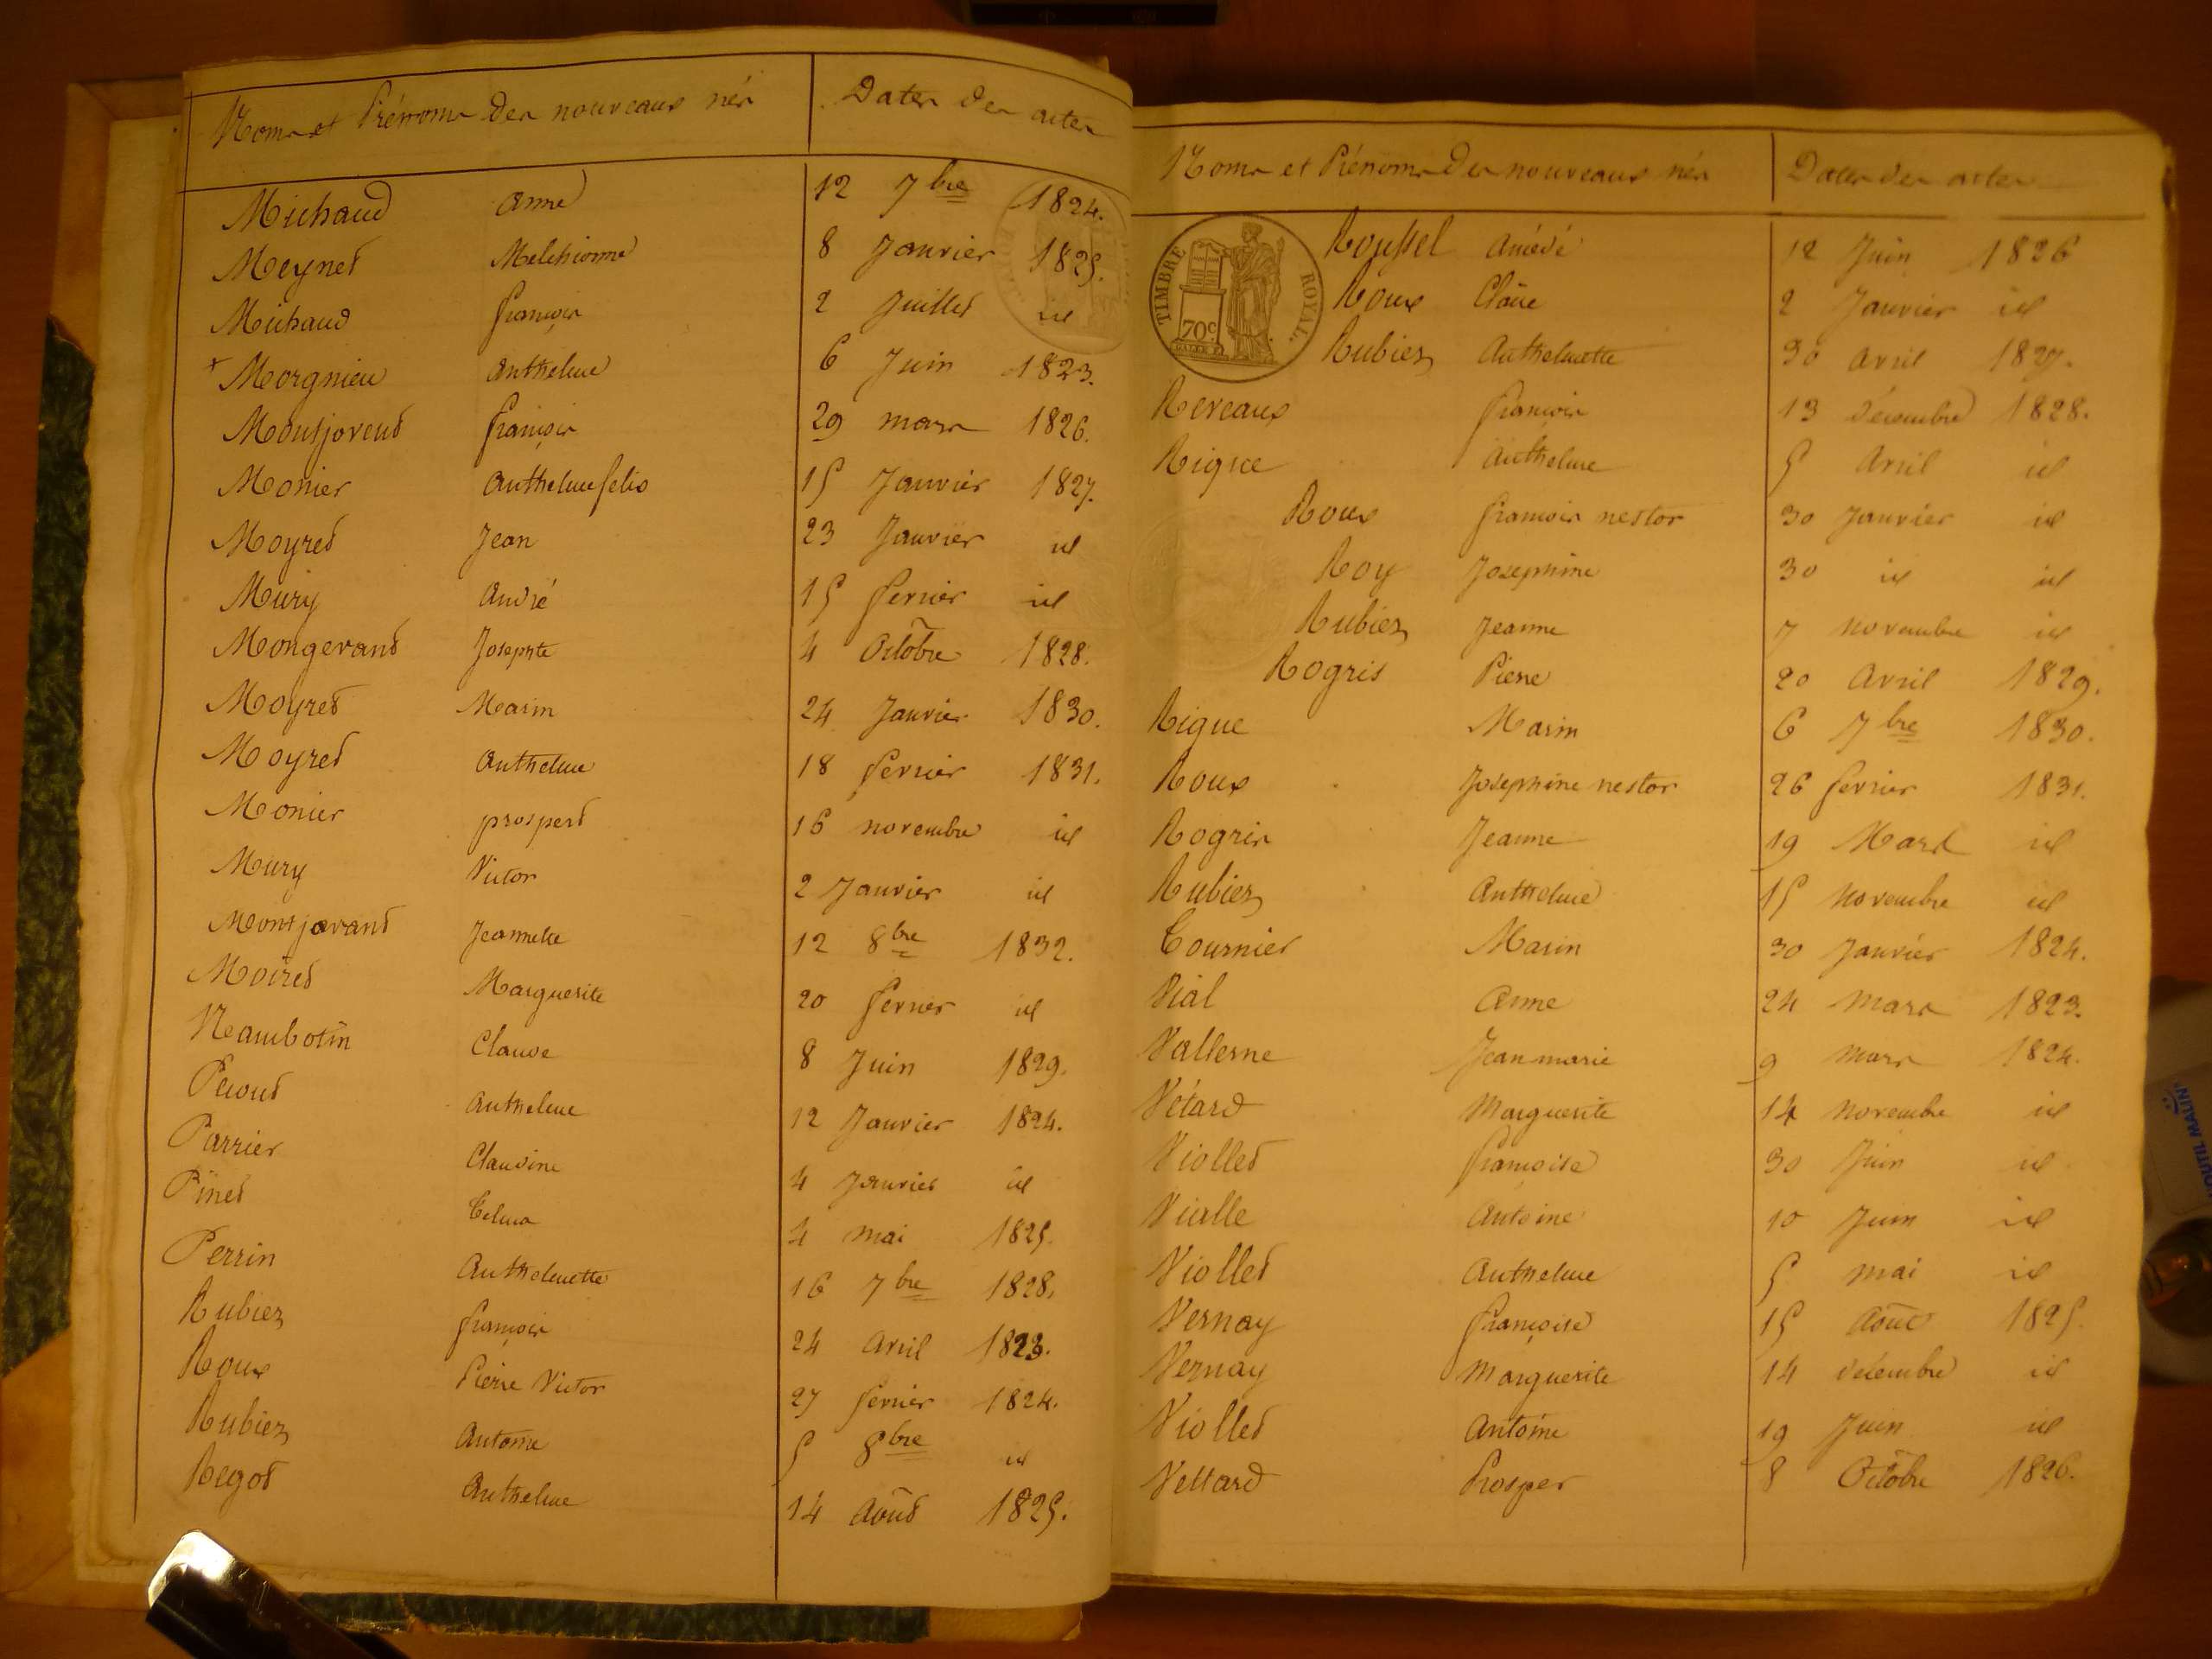 Noms et Prénoms des nouveaux nés Dates des actes
Michaud anne 12 7bre 1824.
Meynet Melchionne 8 Janvier 1825.
Michaud françois 2 Juillet id
+ Morgnieu anthelme 6 Juin 1823.
Montjovend françois 29 mars 1826.
Monier anthelme felix 15 Janvier 1827.
Moyret Jean 23 Janvier id
Mury andré 15 fevrier id
Mongevand Josephte 4 Octobre 1828.
Moyret Marin 24 Janvier 1830.
Moyret Anthelme 18 fevrier 1831.
Monier prosperd 16 novembre id
Mury Victor 2 Janvier id
Montjovand Jeannette 12 8bre 1832.
Moiret Marguerite 20 fevrier id
Neambotin Claude 8 Juin 1829.
Peroud Anthelme 12 Janvier 1824.
Parrier Claudine 4 Janvier id
Pinet 4 mai 1825.
Perrin Anthelmette 16 7bre 1828.
Rubiez françois 24 Avril 1823.
Roux Pierre Victor 27 fevrier 1824.
Rubiez Antoine 5 8bre id
Regot Anthelme 14 Août 1825.
Noms et Prénoms des nouveaux nés Dates des actes
TIMBRE ROYAL.
70c
Roussel Amédé 12 Juin 1826
Roux Claire 2 Janvier id
Rubiez Anthelmette 30 avril 1827.
Reveaux françois 13 décembre 1828.
Rigue Anthelme 5 Avril id
Roux françois nestor 30 Janvier id
Roy Josephine 30 id id
Rubiez Jeanne 7 novembre id
Rogris Pierre 20 Avril 1829.
Rigue Marin 6 7bre 1830.
Roux Josephine nestor 26 fevrier 1831.
Rogris Jeanne 19 Mars id
Rubiez Anthelme 15 Novembre id
Tournier Marin 30 Janvier 1824.
Vial Anne 24 mars 1823.
Vallerne Jean marie 9 mars 1824.
Vétard Marguerite 14 novembre id
Viollet françoise 30 Juin id
Vialle Antoine 10 Juin id
Viollet Anthelme 5 mai id
Vernay françoise 15 Août 1825.
Vernay Marguerite 14 décembre id
Viollet Antoine 19 Juin id
Vettard Prosper 8 Octobre 1826.